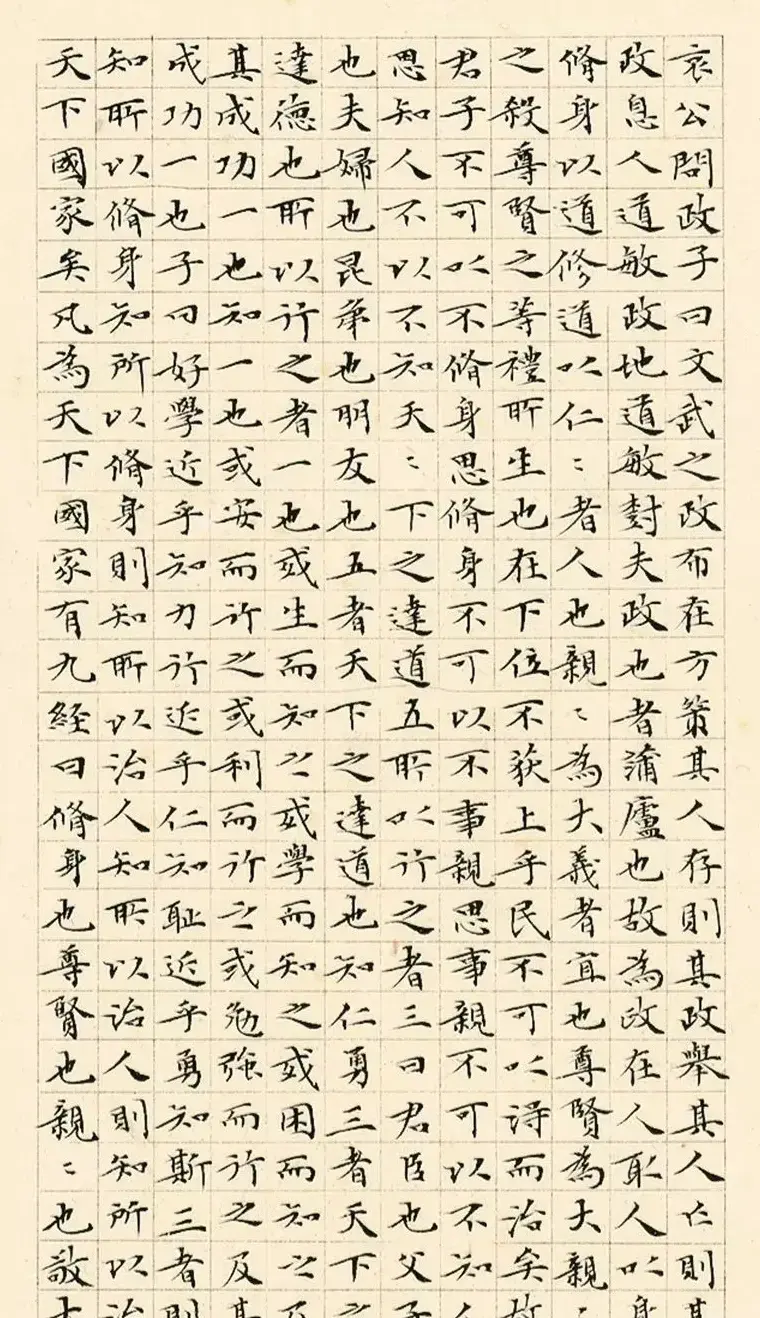 哀公問政子曰文武之政布在方策其人存則其政舉其人亡則其
政息人道敏政地道敏尌夫政也者蒲廬也故為政在人取人以身
脩身以道修道以仁〻者人也親〻為大義者宜也尊賢為大親〻
之殺尊賢之等禮所生也在下位不获上乎民不可以得而治矣故
君子不可以不脩身思脩身不可以不事親思事親不可以不知人
思知人不以不知天〻下之達道五所以行之者三曰君臣也父子
也夫婦也昆弟也朋友也五者天下之達道也知仁勇三者天下之
達德也所以行之者一也或生而知之或學而知之或困而知之及
其成功一也知一也或安而行之或利而行之或勉強而行之及其
成功一也子曰好學近乎知力行近乎仁知耻近乎勇知斯三者則
知所以脩身知所以脩身則知所以治人知所以治人則知所以治
天下國家矣凡為天下國家有九經曰脩身也尊賢也親〻也敬大